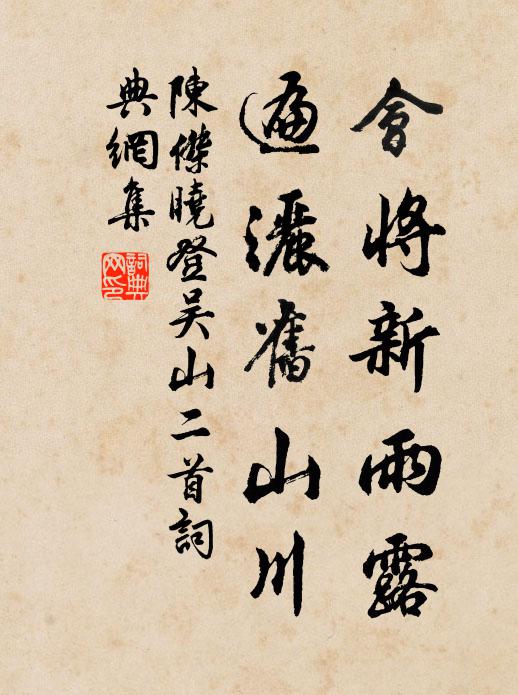 會將新雨露
遍灑舊山川
陳傑曉登吳山二首詞
典網集
詞典網印